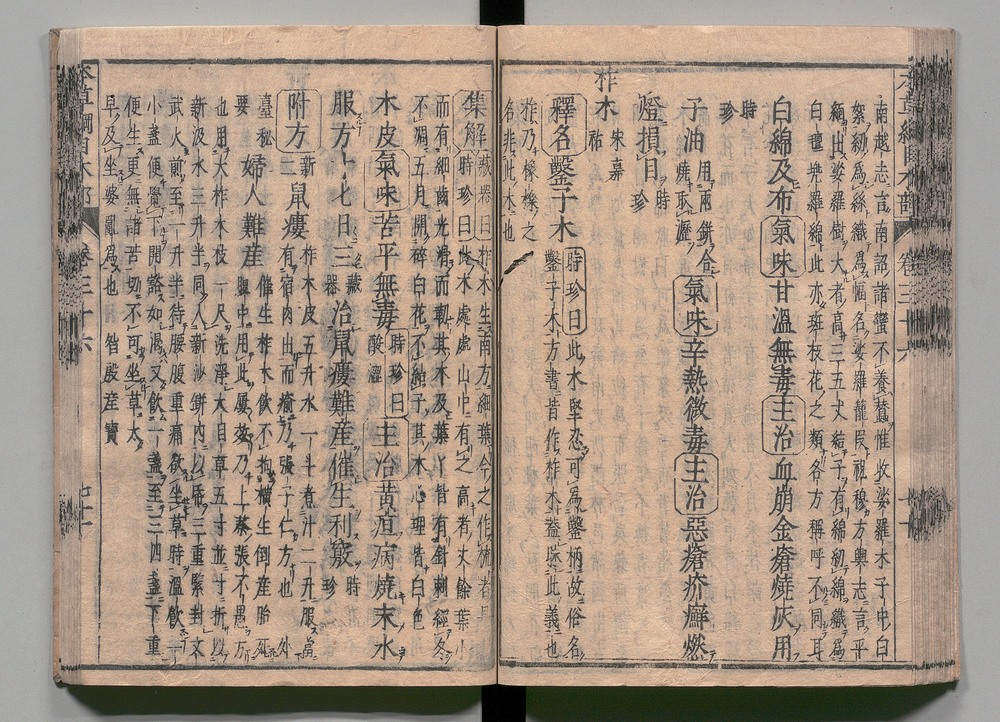 本草綱目木部 卷三十六
南越志言南詔諸蠻不養蠶惟收娑羅木子中白
絮紉為絲織為幅名娑羅籠段祝穆方輿志言平
緬出娑羅樹大者高三五丈結子有綿紉綿織為
白氈兜羅綿此亦斑枝花之類各方稱呼不同耳
白綿及布氣味甘溫無毒主治血崩金瘡燒灰用
時珍
子油用兩缾合燒取瀝氣味辛熱微毒主治惡瘡疥癬燃
燈損目時珍
柞木宋嘉祐
釋名鑿子木時珍曰此木堅忍可為鑿柄故俗名
鑿子木方書皆作柞木蓋昧此義也
柞乃橡櫟之
名非此木也
集解藏器曰柞木生南方細葉今之作梳者是
時珍曰此木處處山中有之高者丈餘葉小
而有細齒光滑而靭其木及葉丫皆有針刺經冬
不凋五月開碎白花不結子其木心理皆白色
木皮氣味苦平無毒時珍曰酸澀主治黃疸病燒末水
服方寸匕日三藏器治鼠瘻難產催生利竅時珍
附方新二鼠瘻柞木皮五升水一斗煮汁二升服當
有宿肉出而愈乃張子仁方也外
臺秘
要婦人難產催生柞木飲不拘橫生倒產胎死
腹中用此屢效乃上蔡張不愚方
也用大柞木枝一尺洗淨大甘草五寸並寸折以
新汲水三升半同入新沙缾內以紙三重緊封文
武火煎至一升半待腰腹重痛欲坐草時溫飲一
小盞便覺下開豁如渴又飲一盞至三四盞下重
便生更無諸苦切不可坐草太
早及坐婆亂為也昝殷產寶
本草綱目木部 卷三十六 七十一